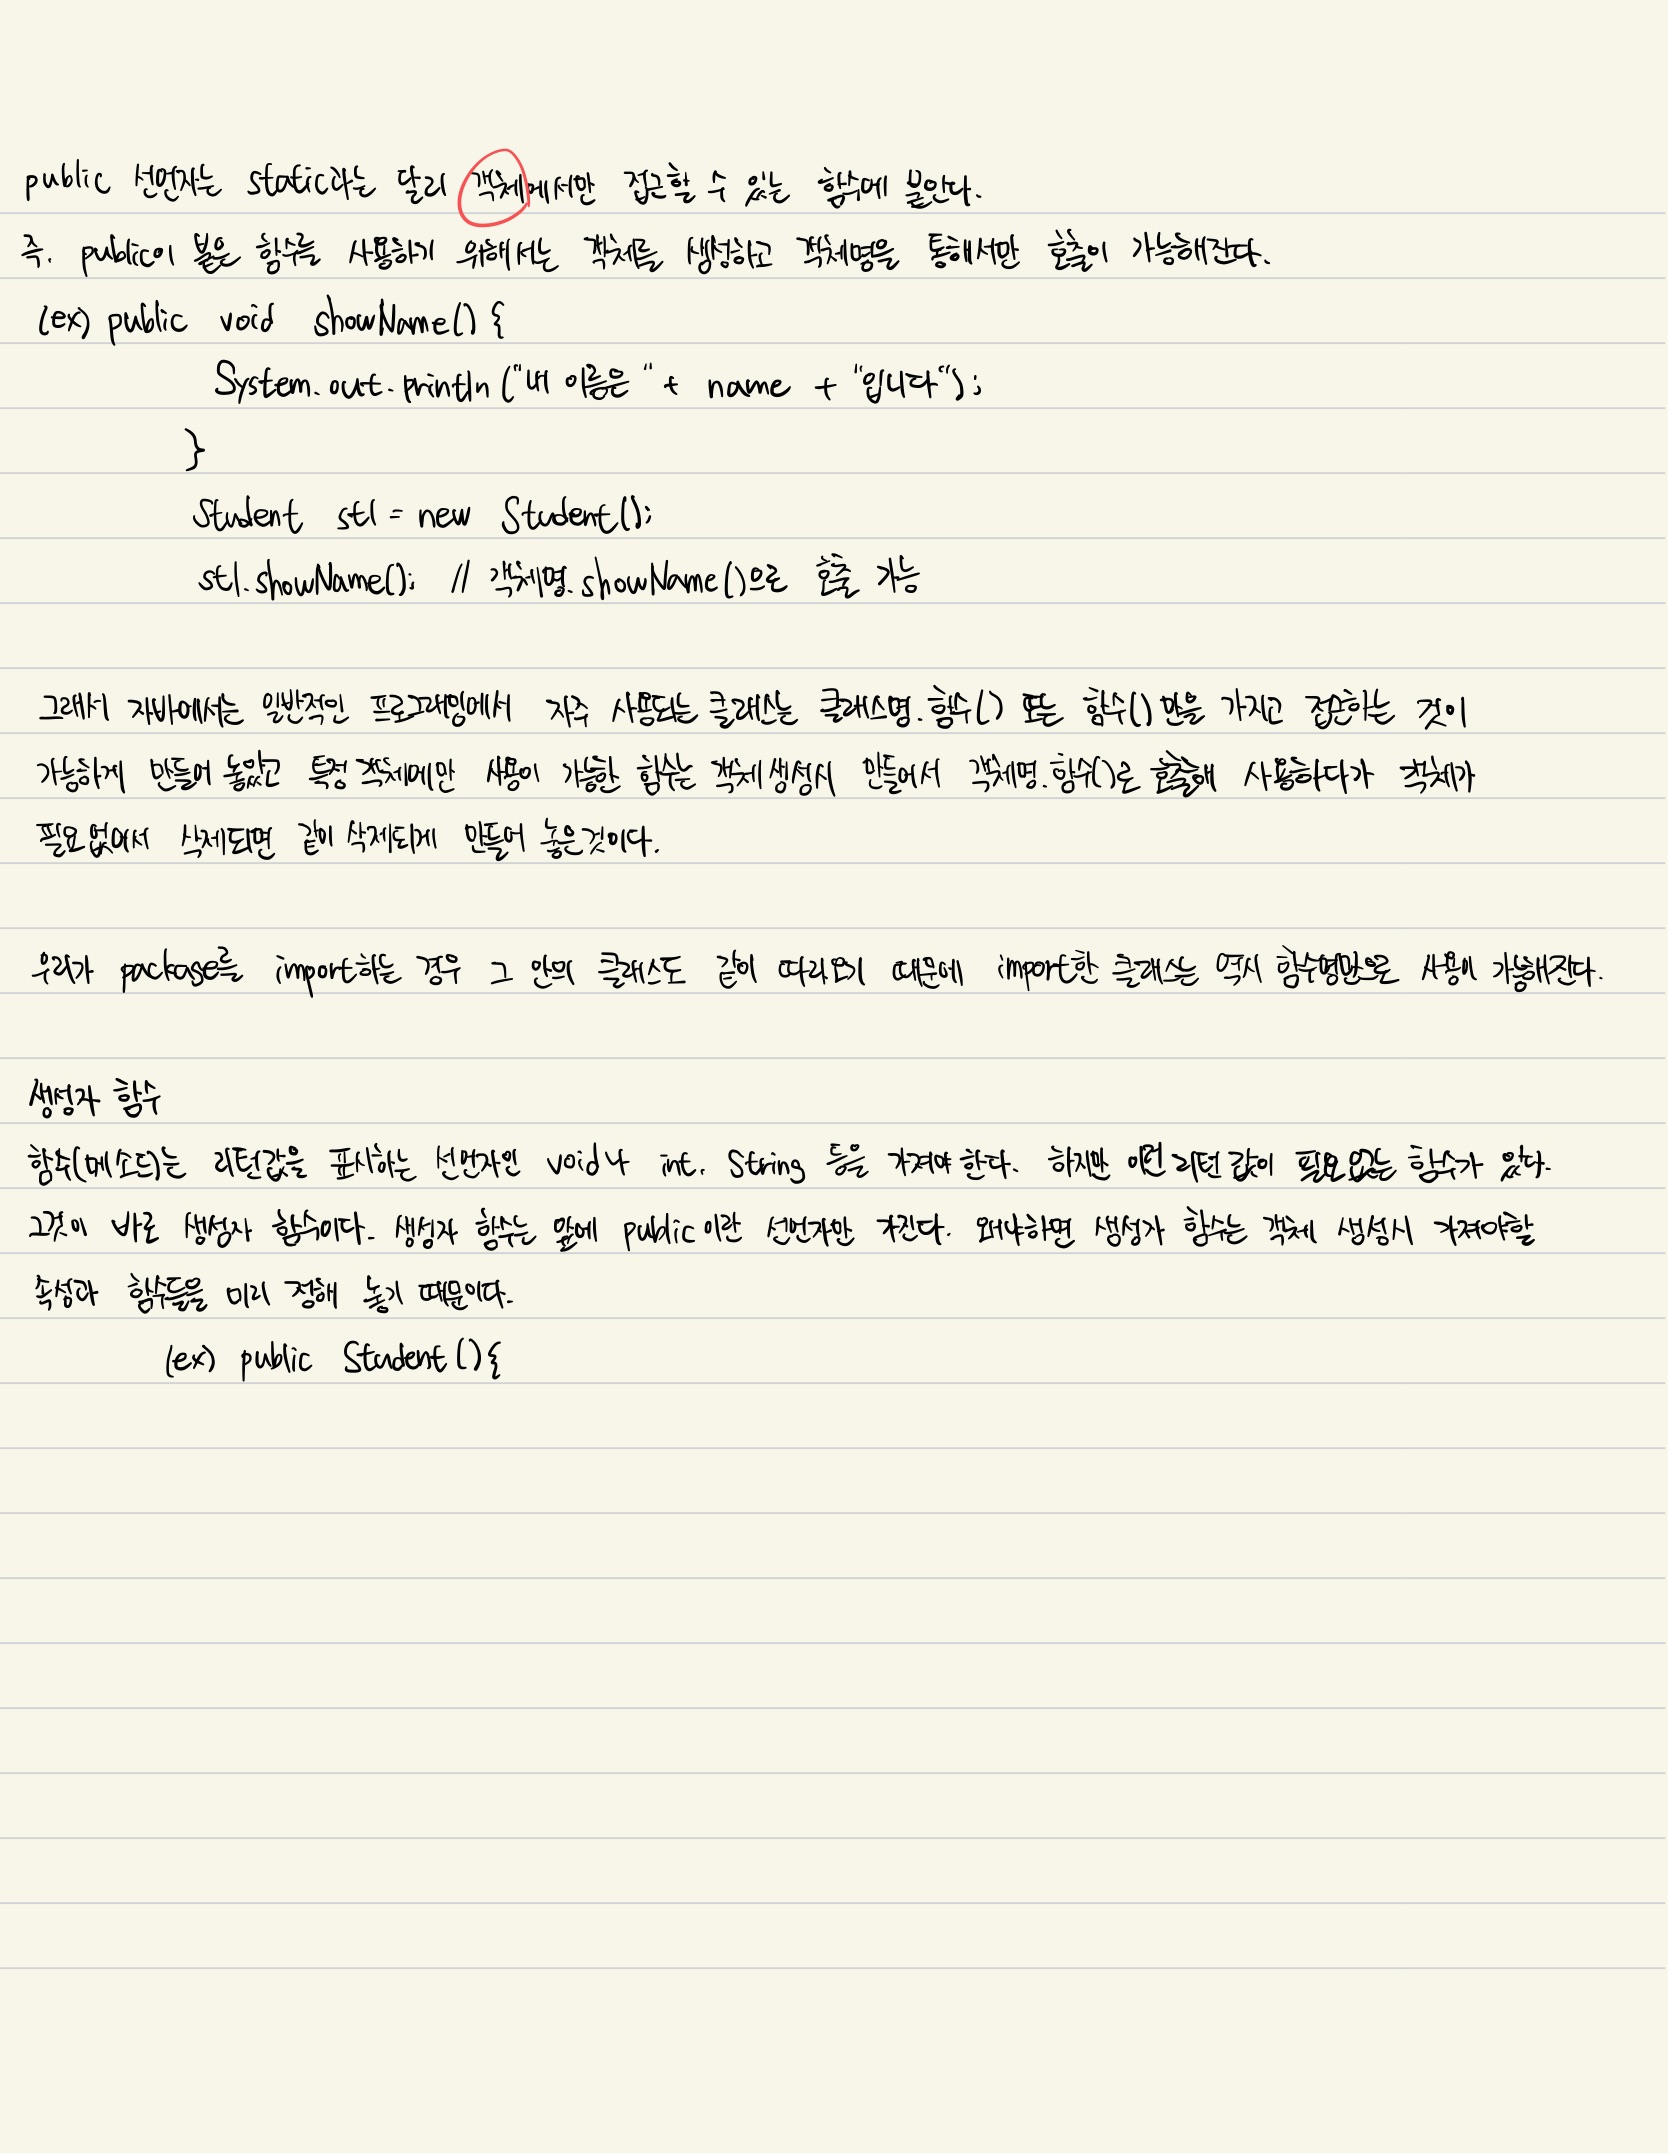 public 선언자는 static과는 달리 객체에서만 접근할 수 있는 함수에 붙인다.
즉. public이 붙은 함수를 사용하기 위해서는 객체를 생성하고 객체명을 통해서만 호출이 가능해진다.
(ex) public void showName() {
System.out.println("내 이름은 " + name + "입니다");
}
Student st1 = new Student();
st1.showName(); // 객체명.showName()으로 호출 가능
그래서 자바에서는 일반적인 프로그래밍에서 자주 사용되는 클래스는 클래스명.함수() 또는 함수()만을 가지고 접근하는 것이
가능하게 만들어 놓았고 특정 객체에만 사용이 가능한 함수는 객체 생성시 만들어서 객체명.함수()로 호출해 사용하다가 객체가
필요 없어서 삭제되면 같이 삭제되게 만들어 놓은것이다.
우리가 package를 import하는 경우 그 안의 클래스도 같이 따라오기 때문에 import한 클래스는 역시 함수명만으로 사용이 가능해진다.
생성자 함수
함수(메소드)는 리턴값을 표시하는 선언자인 void나 int, String 등을 가져야 한다. 하지만 이런 리턴 값이 필요 없는 함수가 있다.
그것이 바로 생성자 함수이다. 생성자 함수는 앞에 public이란 선언자만 가진다. 왜냐하면 생성자 함수는 객체 생성시 가져야할
속성과 함수들을 미리 정해 놓기 때문이다.
(ex) public Student(){